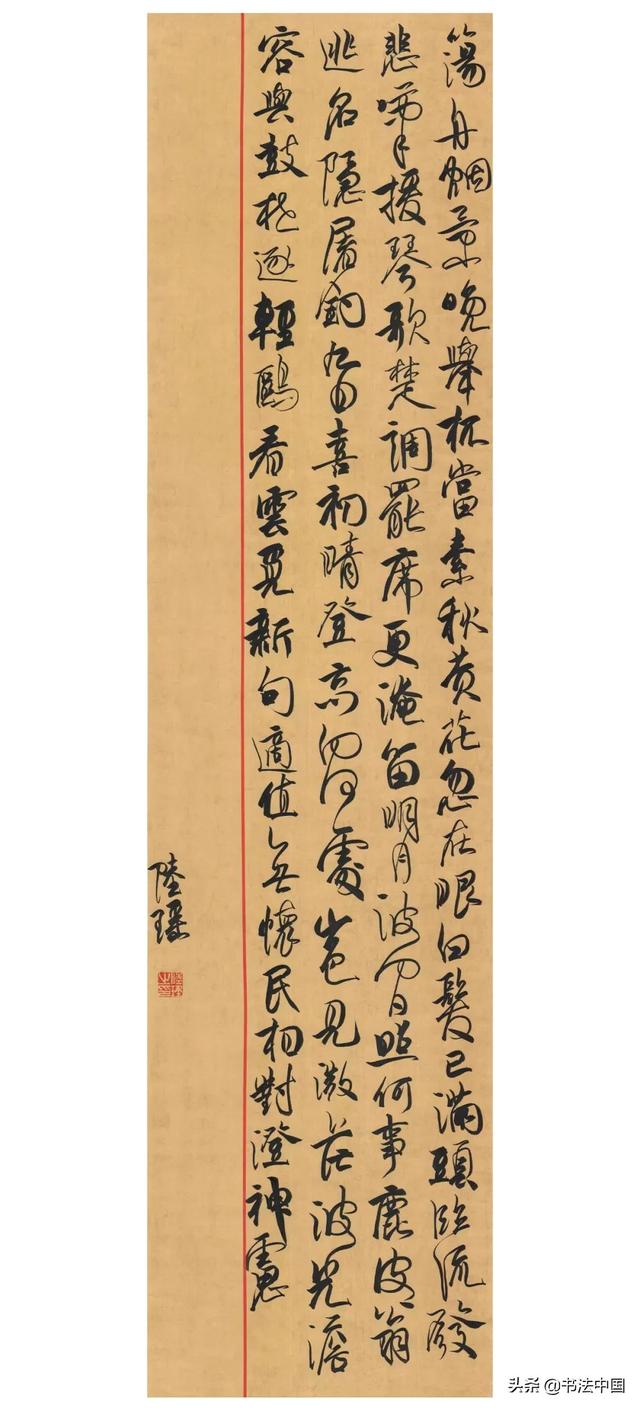 蕩舟烟景晚舉杯當素秋黄花忽在眼白髮已滿頭臨流發
悲嘯援琴歌楚調罷席更淹留明月波間照何事鹿皮翁
逃名隱屠釣九日喜初晴登高向何處山色見微茫波光澹
容與鼓枻逐輕鷗看雲覓新句適值無懷民相對澄神慮
陸
头条 @书法中国